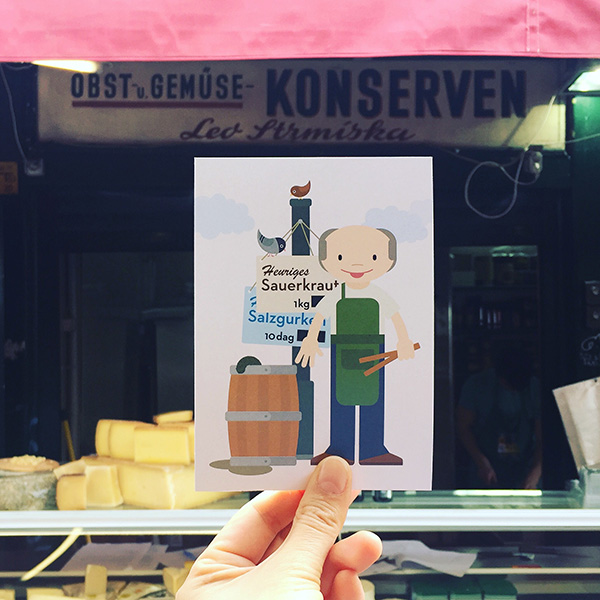 OBST-u.GEMÜSE-KONSERVEN
Leo Strmiska
Heuriges
Sauerkraut
1kg
H
Salzgurken
10dag